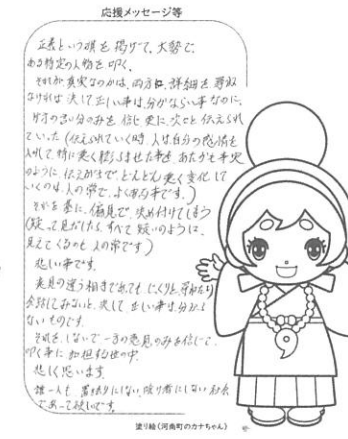 応援メッセージ等
正義という旗を掲げて、大勢で、
ある特定の人物を叩く。
それが真実なのかは、両方に詳細を尋ね
なければ決して正しい事は分からない事なのに、
片方の言い分のみを信じ更に、次々と伝えられ
ていった(伝えられていく時、人は自分の感情を
入れて、特に悪く
のように、伝えがまで、どんどん悪く変化して
いくのは、人の常で、よくある事です。)
それを基に、偏見で、決め付けてしまう
(疑って見だしたら、すべて疑いのように、
見えてくるのも人の常です)
悲しい事です。
意見の違う相手であっても じっくりと、
してみないと、決して正しい事は、分から
ないものです。
それを、しないで一方の意見のみを信じて、
叩く事に加担する世の中。
悲しく思います。
誰一人も 置き去りにしない、除け者にしない社会
であって欲しいです。
塗り絵(河南町のカナちゃん)